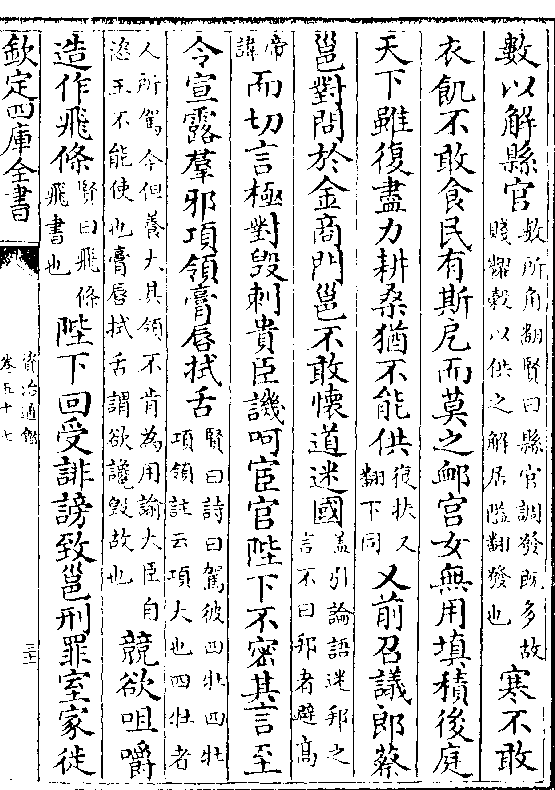 數以解縣官數所角翻賢曰縣官調發既多故賤糶穀以供之解居隘翻發也寒不敢
衣飢不敢食民有斯戹而莫之䘏宫女無用填積後庭
天下雖復盡力耕桑猶不能供復扶又翻下同又前召議郎蔡
邕對問於金商門邕不敢懷道迷國蓋引論語迷邦之言不曰邦者避高
帝諱而切言極對毁刺貴臣譏呵宦官陛下不密其言至
令宣露羣邪項領膏唇拭舌賢曰詩曰駕彼四牡四牡項領註云項大也四牡者
人所駕今但養大其領不肯為用諭大臣自恣王不能使也膏唇拭舌謂欲讒毁故也競欲咀嚼
造作飛條賢曰飛條飛書也陛下回受誹謗致邕刑罪室家徙
欽定四庫全書
資治通鑑
卷五十七